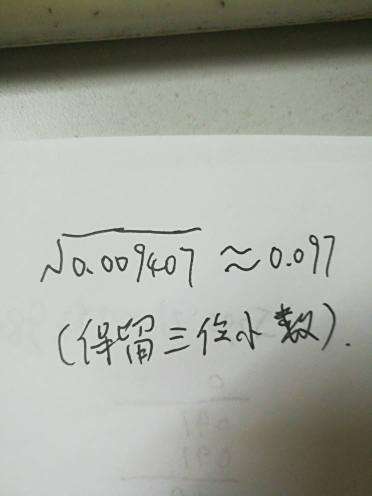 √0.009407 ≈ 0.097
(保留三位小数).